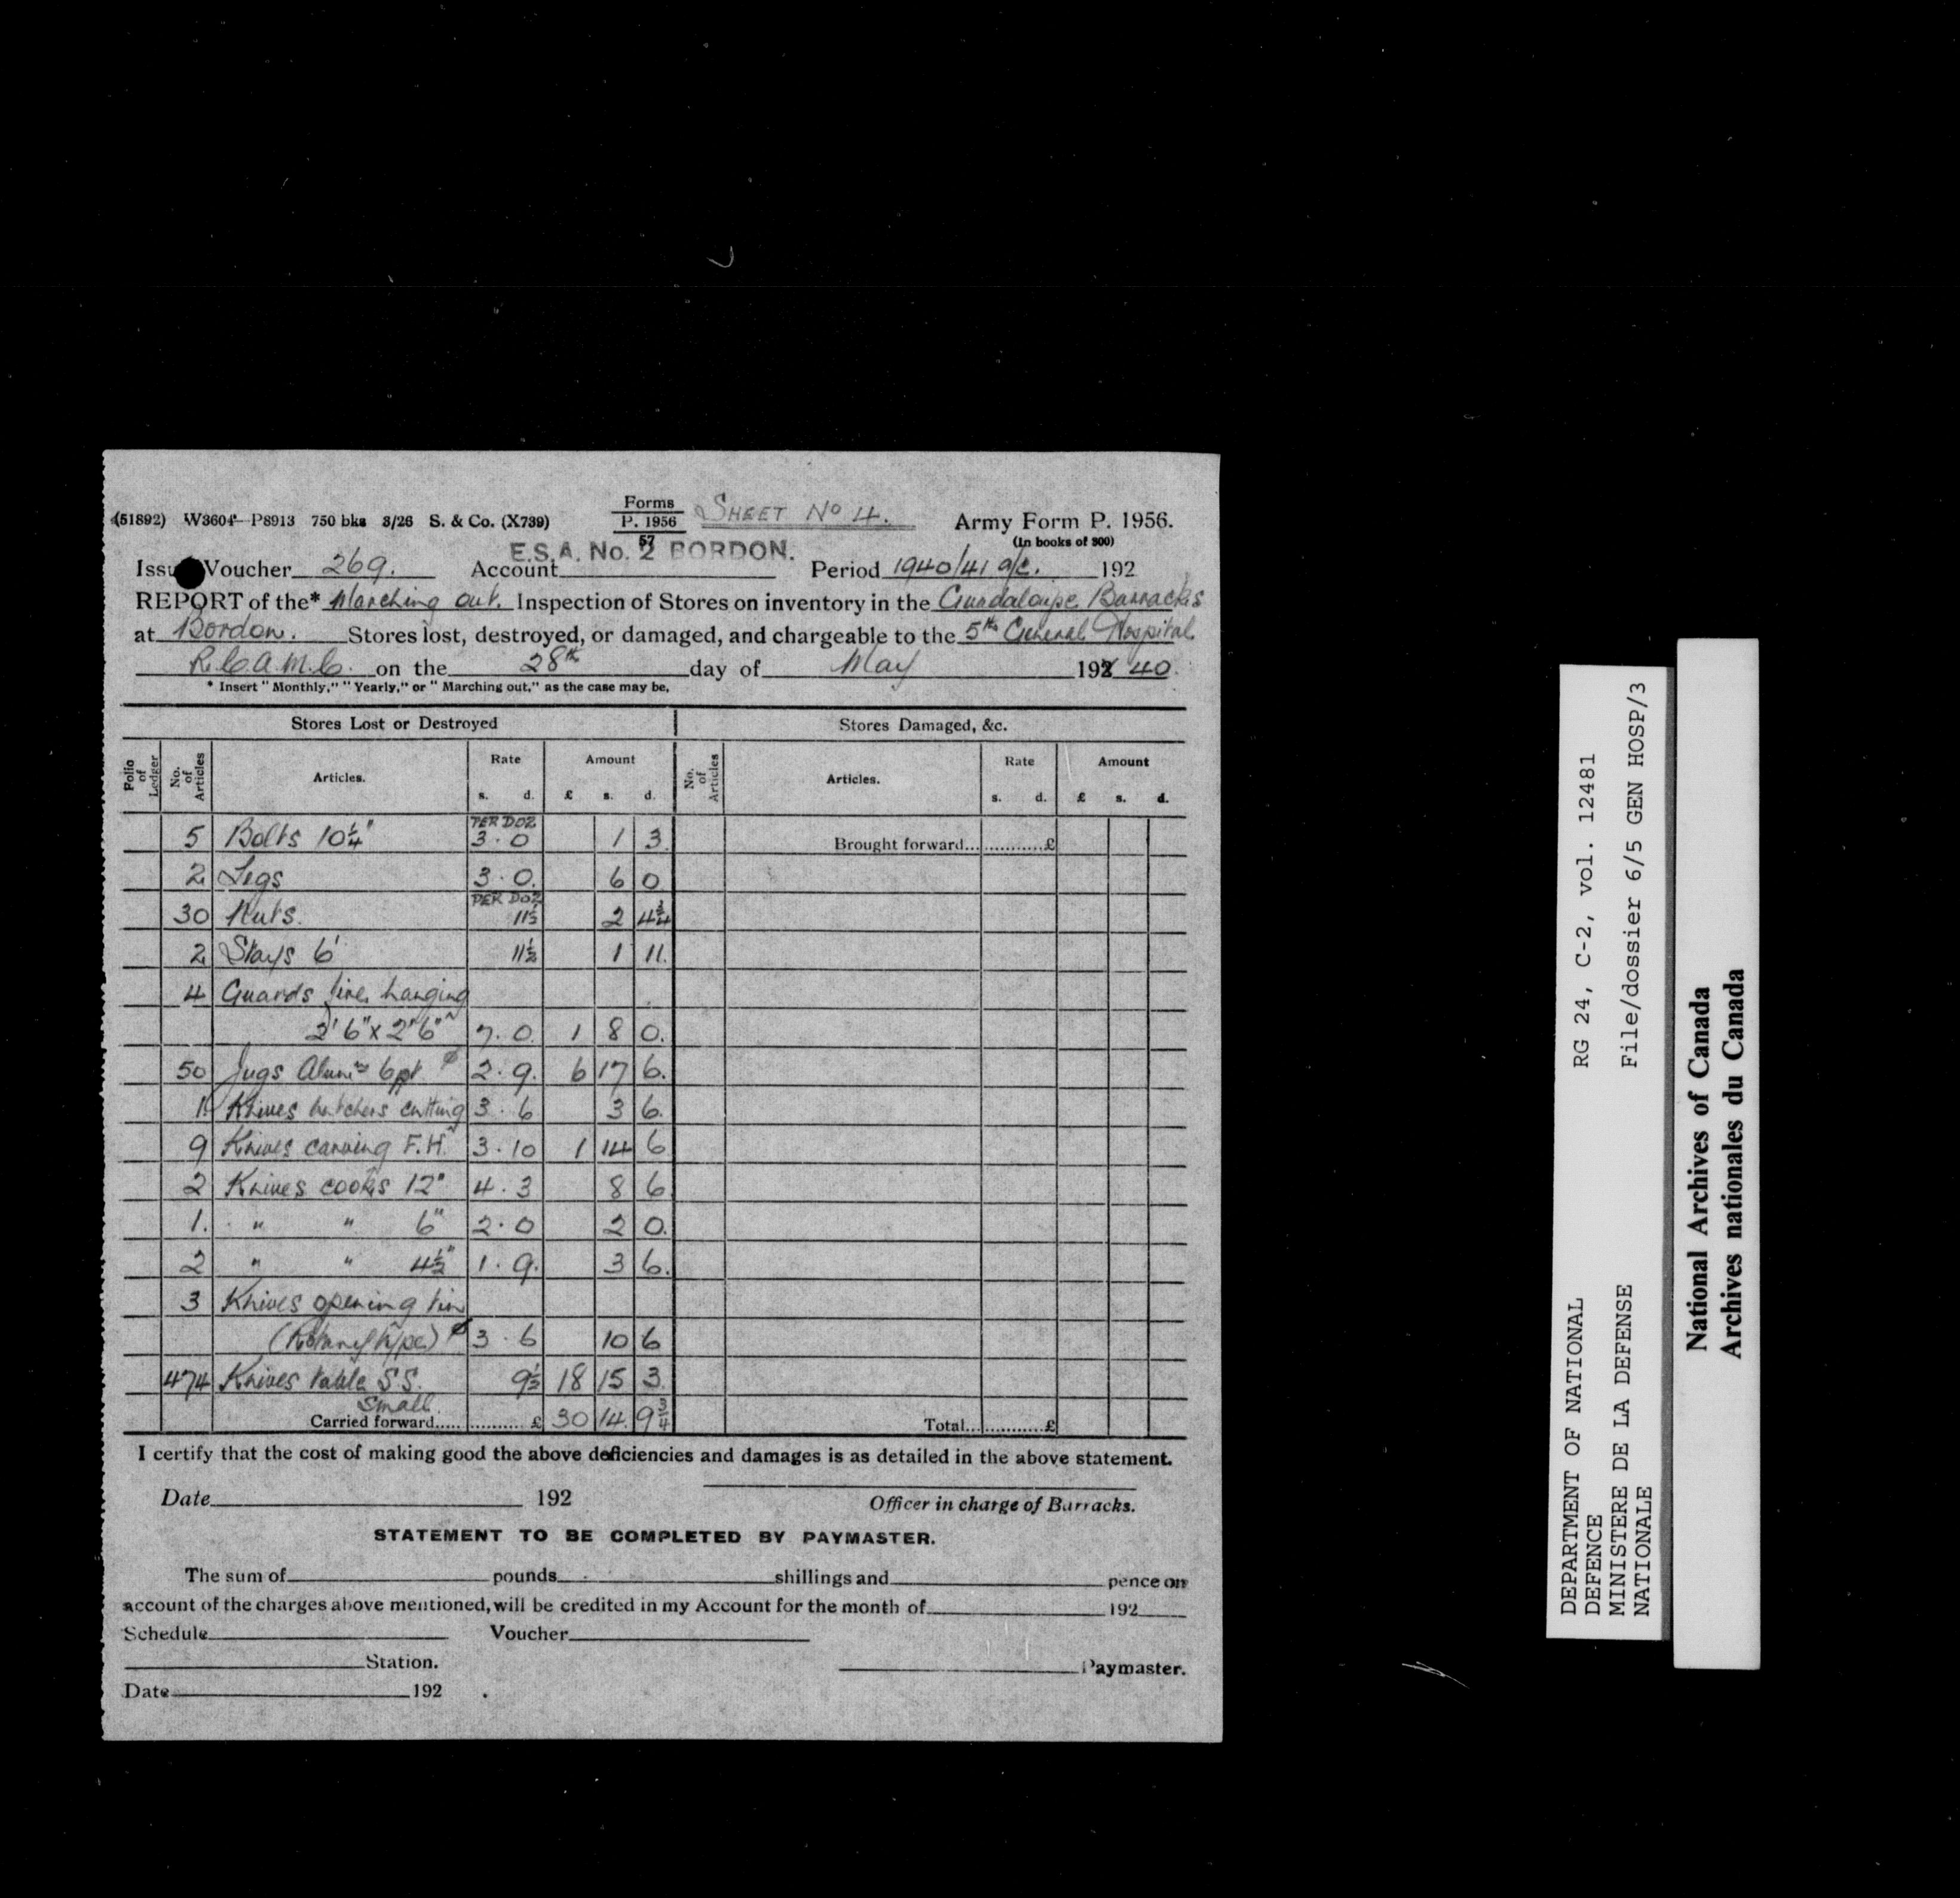 (51892) W3604—P8913 750 bks 3/26 S. & Co. (X739)
Forms
P. 1956
57
SHEET No 4.
Army Form P. 1956.
(In books of 300)
E.S.A. No. 2 BORDON.
Issue Voucher 269. Account Period 1940/41 a/c. 192
REPORT of the* Marching out. Inspection of Stores on inventory in the Guadaloupe Barracks
at Bordon. Stores lost, destroyed, or damaged, and chargeable to the 5th General Hospital
R.C.A.M.C. on the 28th day of May 192 40.
* Insert "Monthly," "Yearly," or "Marching out," as the case may be.
Stores Lost or Destroyed Stores Damaged, &c.
Folio of Ledger No. of Articles Articles. Rate Amount No. of Articles Articles. Rate Amount
s. d. £ s. d. s. d. £ s. d.
PER DOZ
5 Bolts 10¼" 3. 0 1 3. Brought forward...............£
2 Legs 3. 0. 6 0
PER DOZ
30 Nuts. 11½ 2 4¾
2 Stays 6' 11½ 1 11.
4 Guards fire hanging
2'6" x 2'6" 7. 0. 1 8 0.
50 Jugs Alumm 6pt. 2. 9. 6 17 6.
1 Knives butchers cutting 3. 6 3 6.
9 Knives carving F.H. 3. 10 1 14 6
2 Knives cooks 12" 4. 3 8 6
1. " " 6" 2. 0 2 0.
2 " " 4½" 1. 9. 3 6.
3 Knives opening tin
(Rotary type) 3. 6 10 6
474 Knives table S.S. 9½ 18 15 3.
Small.
Carried forward............... £ 30 14. 9¾ Total...............£
I certify that the cost of making good the above deficiencies and damages is as detailed in the above statement.
Date 192
Officer in charge of Barracks.
STATEMENT TO BE COMPLETED BY PAYMASTER.
The sum of pounds shillings and pence on
account of the charges above mentioned, will be credited in my Account for the month of 192
Schedule Voucher
Station. Paymaster.
Date 192
DEPARTMENT OF NATIONAL RG 24, C-2, vol. 12481
DEFENCE
MINISTERE DE LA DEFENSE File/dossier 6/5 GEN HOSP/3
NATIONALE
National Archives of Canada
Archives nationales du Canada